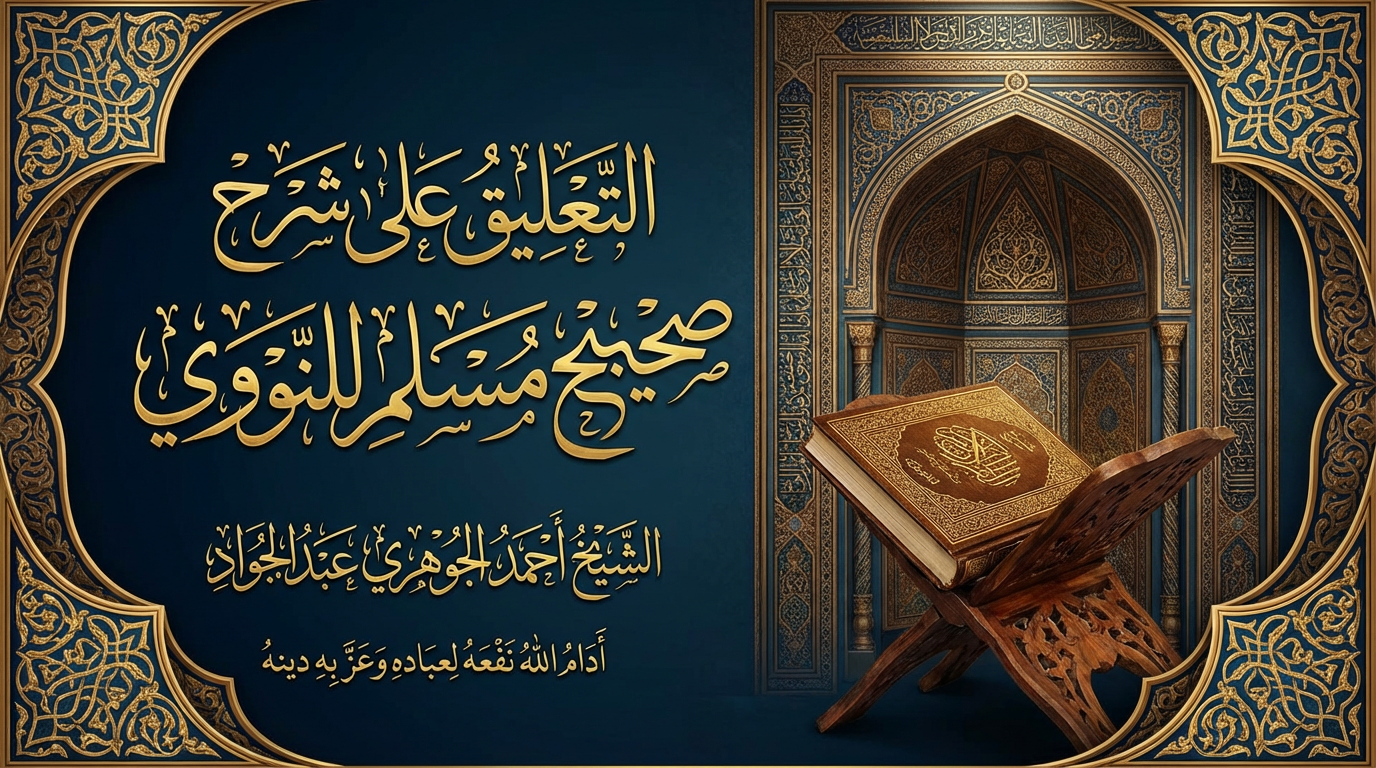 التَّعْلِيقُ عَلَى شَرْحِ
صَحِيْحِ مُسْلِمِ لِلنَّوَوِي
الشَّيْخُ أَحْمَدُ الجُوْهَرِي عَبْدُ الجُوَادِ
أَدَامُ اللهُ نَفْعَهُ لِعِبَادِهِ وَعَزَّ بِهِ دِينهُ